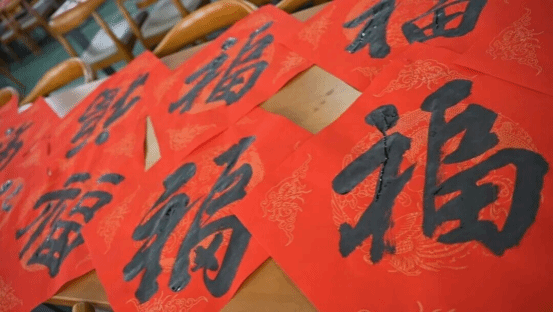 福
福
福
福
福
福